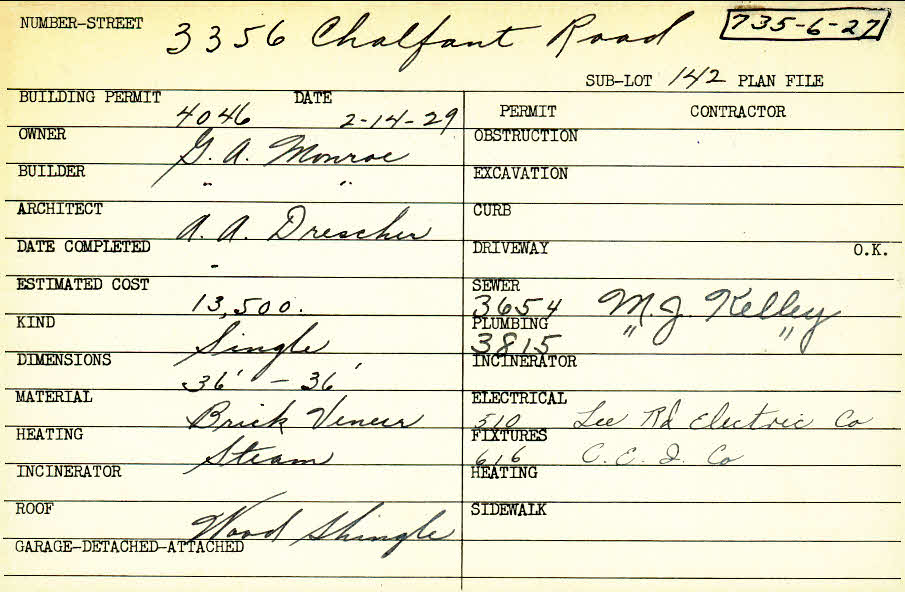 NUMBER-STREET 3356 Chalfant Road 735-6-27
SUB-LOT 142 PLAN FILE
BUILDING PERMIT 4046 DATE 2-14-29
OWNER G. A. Monroe
BUILDER " "
ARCHITECT A. A. Drescher
DATE COMPLETED -
ESTIMATED COST 13,500.
KIND Single
DIMENSIONS 36' - 36'
MATERIAL Brick Veneer
HEATING Steam
INCINERATOR
ROOF Wood Shingle
GARAGE-DETACHED-ATTACHED
PERMIT CONTRACTOR
OBSTRUCTION
EXCAVATION
CURB
DRIVEWAY O.K.
SEWER 3654 M. J. Kelley
PLUMBING 3815 " "
INCINERATOR
ELECTRICAL 510 Lee Rd Electric Co
FIXTURES 616 C. E. I. Co
HEATING
SIDEWALK